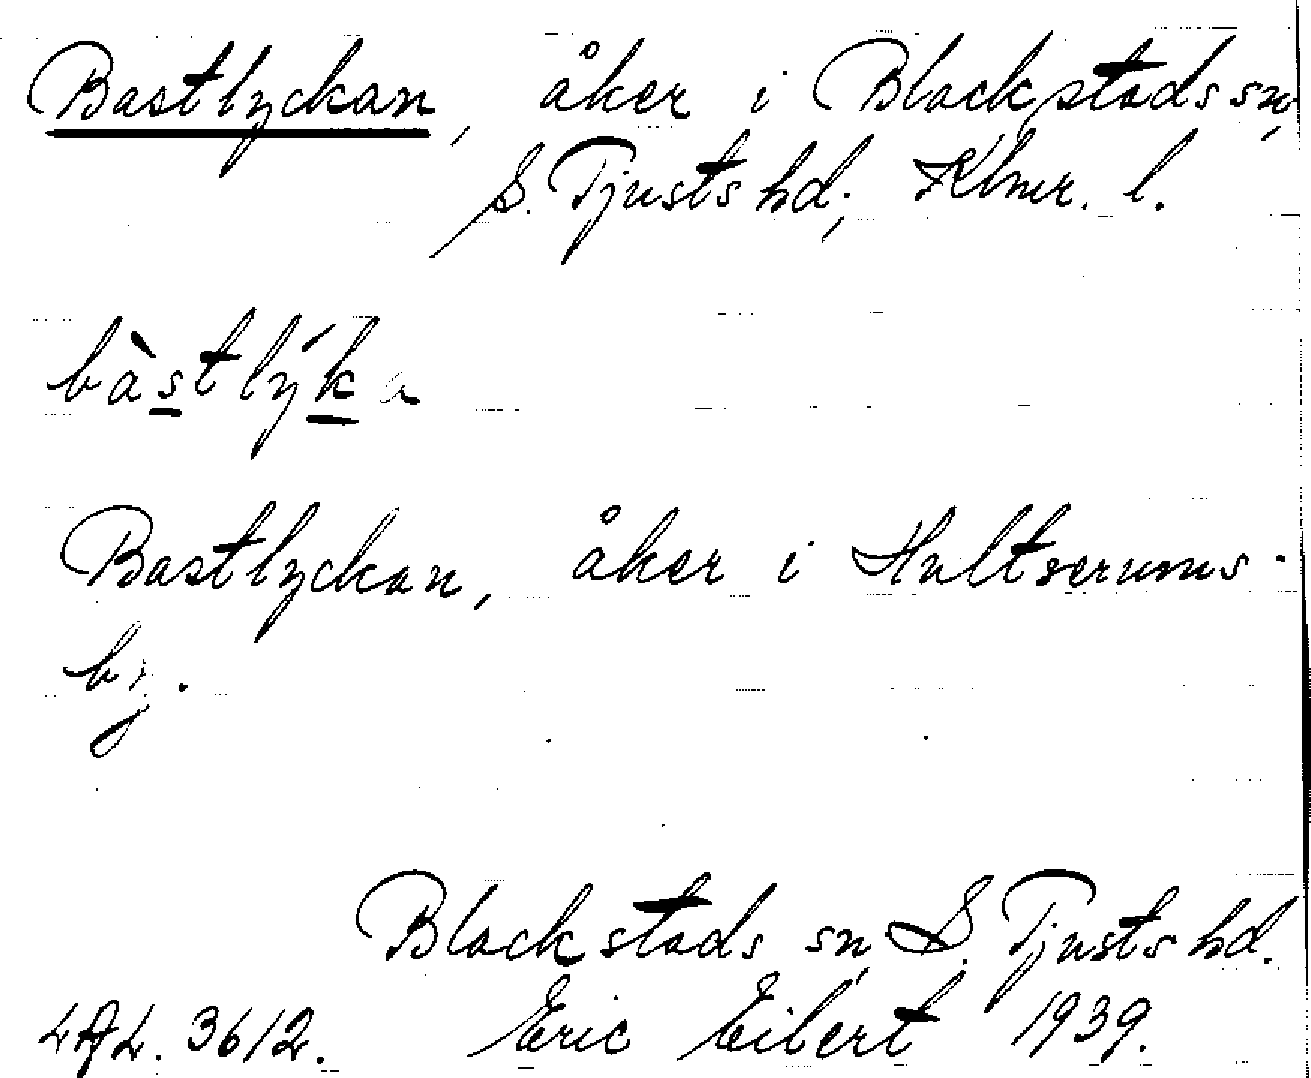 Bastlyckan, åker i Blackstads sn,
S. Tjusts hd; Klmr. l.
bàstlýka
Bastlyckan, åker i Hultserums
by.
Blackstads sn, S. Tjusts hd.
LAL. 3612. Eric Eilert 1939.